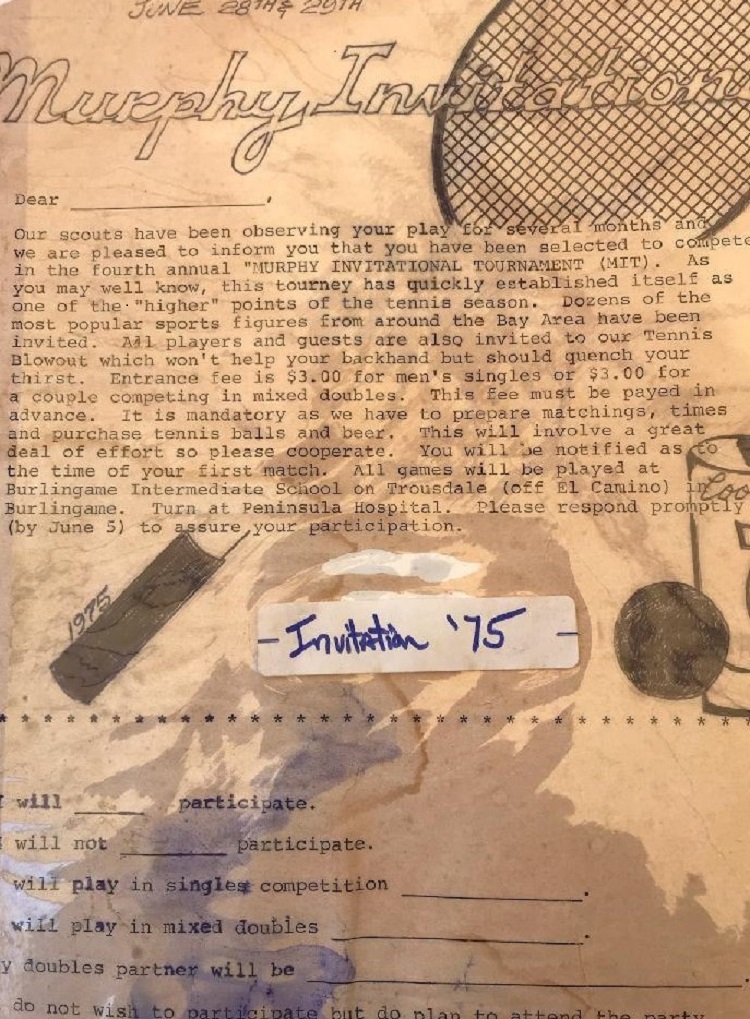 JUNE 28TH & 29TH
Murphy Invitation
Dear ____________.
Our scouts have been observing your play for several months and
we are pleased to inform you that you have been selected to compete
in the fourth annual "MURPHY INVITATIONAL TOURNAMENT (MIT).  As
you may well know, this tourney has quickly established itself as
one of the "higher" points of the tennis season.  Dozens of the
most popular sports figures from around the Bay Area have been
invited.  All players and guests are also invited to our Tennis
Blowout which won't help your backhand but should quench your
thirst.  Entrance fee is $3.00 for men's singles or $3.00 for
a couple competing in mixed doubles.  This fee must be payed in
advance.  It is mandatory as we have to prepare matchings, times
and purchase tennis balls and beer.  This will involve a great
deal of effort so please cooperate.  You will be notified as to
the time of your first match.  All games will be played at
Burlingame Intermediate School on Trousdale (off El Camino) in
Burlingame.  Turn at Peninsula Hospital.  Please respond promptly
(by June 5) to assure your participation.
1975
- Invitation '75 -
* * * * * * * * * * * * * * * * * * * * * * * * * * * * * * * * * * * *
I will _____ participate.
I will not ________ participate.
will play in singles competition ______________.
will play in mixed doubles ___________________.
y doubles partner will be ________________________________.
do not wish to participate but do plan to attend the party